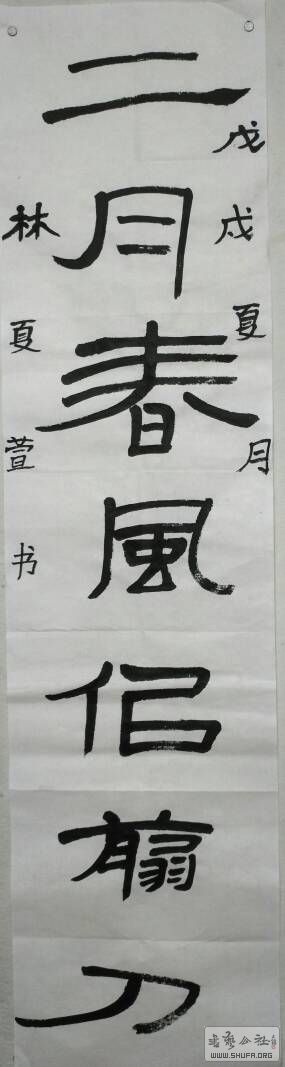 戊戌夏月
二月春風佀翦刀
林夏萱书
书艺公社
WWW.SHUFA.ORG